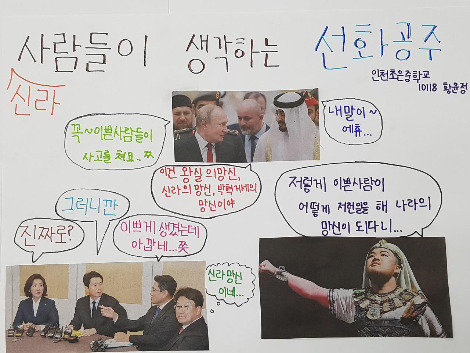 사람들이 생각하는 선화공주
신라
인천초은중학교
10118 황윤정
꼭~이쁜사람들이
사고를 쳐요..ㅉ
내말이~
에휴...
이건 왕실의망신,
신라의 망신, 박혁거세의
망신이야
저렇게 이쁜사람이
어떻게 저런일을 해 나라의
망신이 되다니...
진짜로?
그러니깐
이쁘게 생겼는데
아깝네...쯧
신라망신
이네...